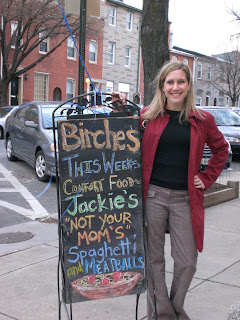 Birches
This Week's
Comfort Food-
Jackie's
"Not Your
Mom's"
Spaghetti
and Meatballs